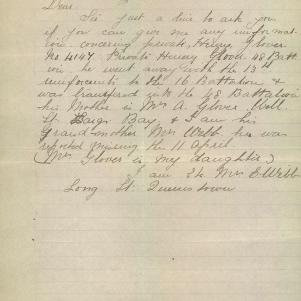 Dear
Sir just a line to ask you
if you can give me any informat
ion concering private Henry Glover
No 4147 Private Henry Glover 48 Batt
ion he went away with the 13th
reinforcments to the 16 Battalion &
was transfered into the 48 Battalion
his Mother is Mrs A. Glover Well
St Bay, & I am his
Grandmother Mrs Webb he was
reported missing the 11 April
(Mrs Glover is my daughter)
I am Mrs E Webb
Long St Queenstown